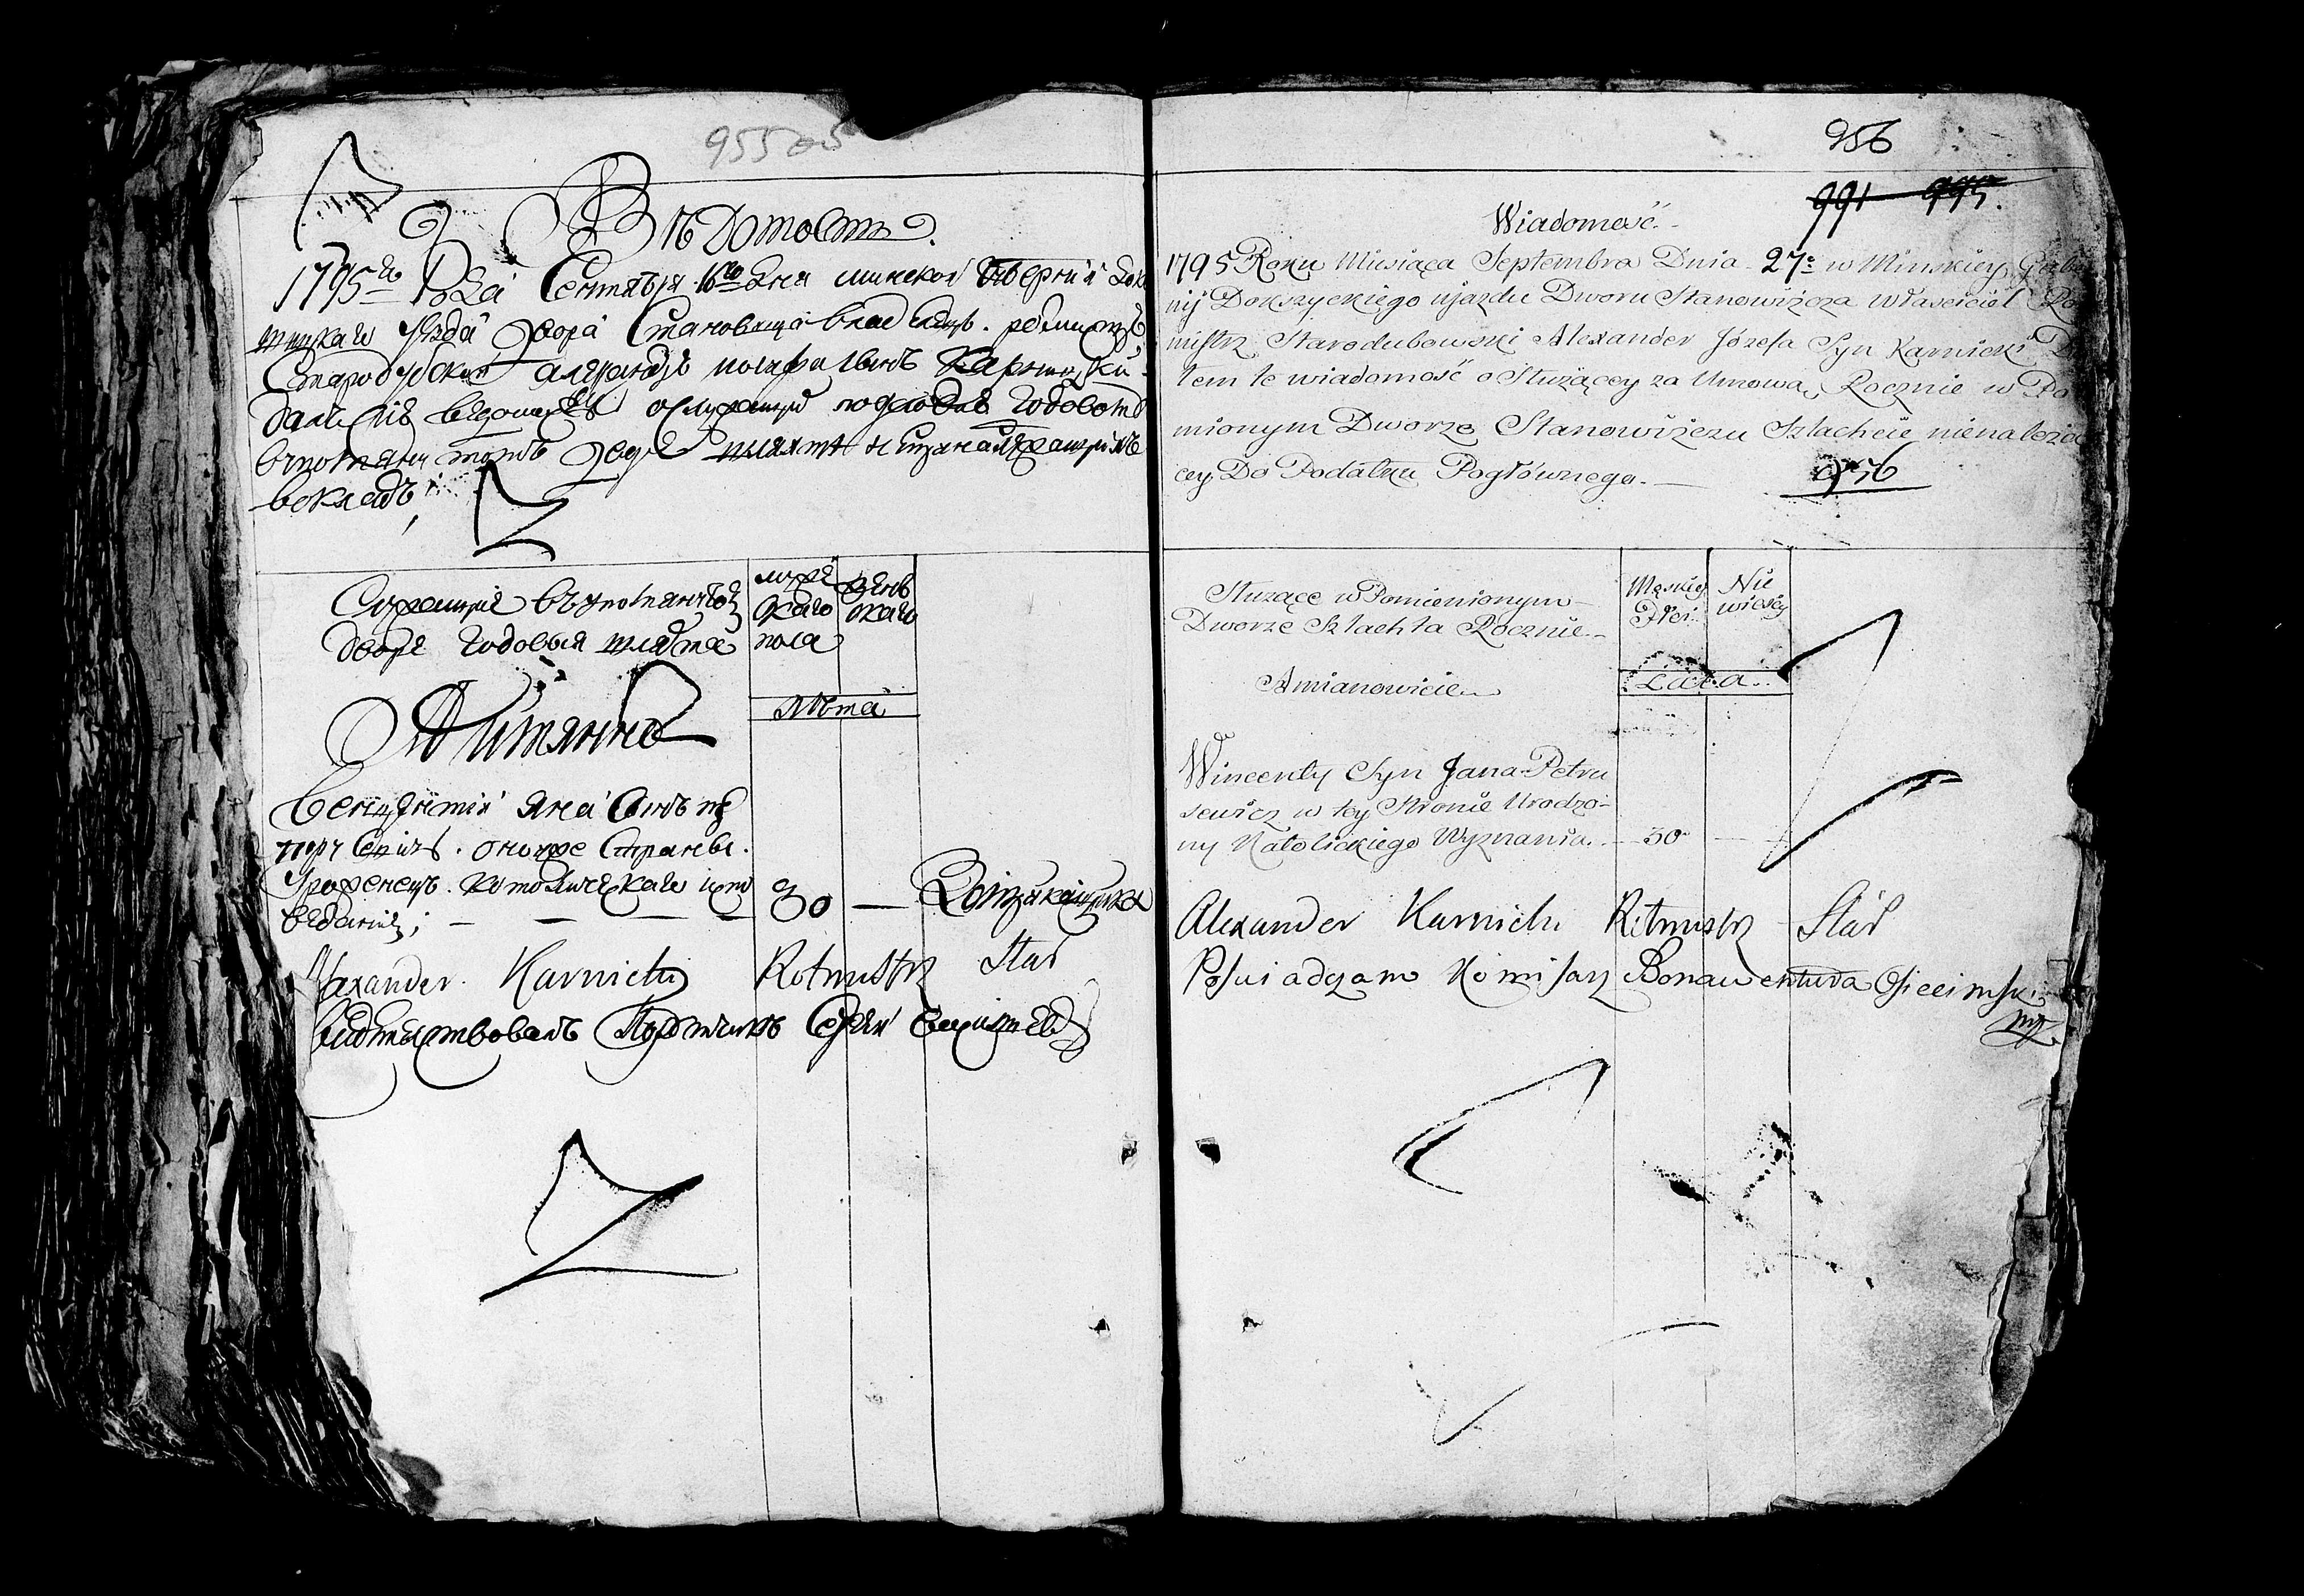 955об
Вѣдомость.
1795го Года Сентября 16го дня минской Губернии Док
шицкаго уѣзда двора Становища владѣлецъ ротмистръ
Стародубскии александръ иосифа сынъ Карницкий
далъ сие ведомость о служащей годовой
в упомянутомъ дворе шляхте
в окладъ;
Служащие в упомянутомъ
дворе годовыя шляхта
муже
скаго
пола
женъ
скаго
лѣта
А имянно
Венцентий яна сынъ пе
трусевичъ. оноже стране
уроженецъ. католическаго испо
веданий; — — — —
30 —
Alexander Karnicki Rotmistrz Star
свидѣтельствовалъ
956
991 995.
Wiadomość.
1795 Roku Miesiąca Septembra Dnia 27: w Minskiey Guber
nij Dokszyckiego ujazdu Dworu Stanowiszcza Właściciel Ro
mistrz Starodubowski Alexander Józefa Syn Karnicki Da
łem te wiadomość o Służącey za Umową Rocznie w Po
mionym Dworze Stanowiszczu Szlachcie nienależą
cey Do Podatku Pogłównego.
956
Służące w Pomienionym
Dworze Szlachta Rocznie
Męskiey
Płci
Nie
wieści
Amianowicie
Lata
Wincenty Syn Jana Petru
sewicz w tey Stronie Urodzo-
ny Katolickiego Wyznania. — 30 —
Alexander Karnicki Rotmistrz Star
Poswiadczam Komisarz Bonawentura Osiecimski
mp